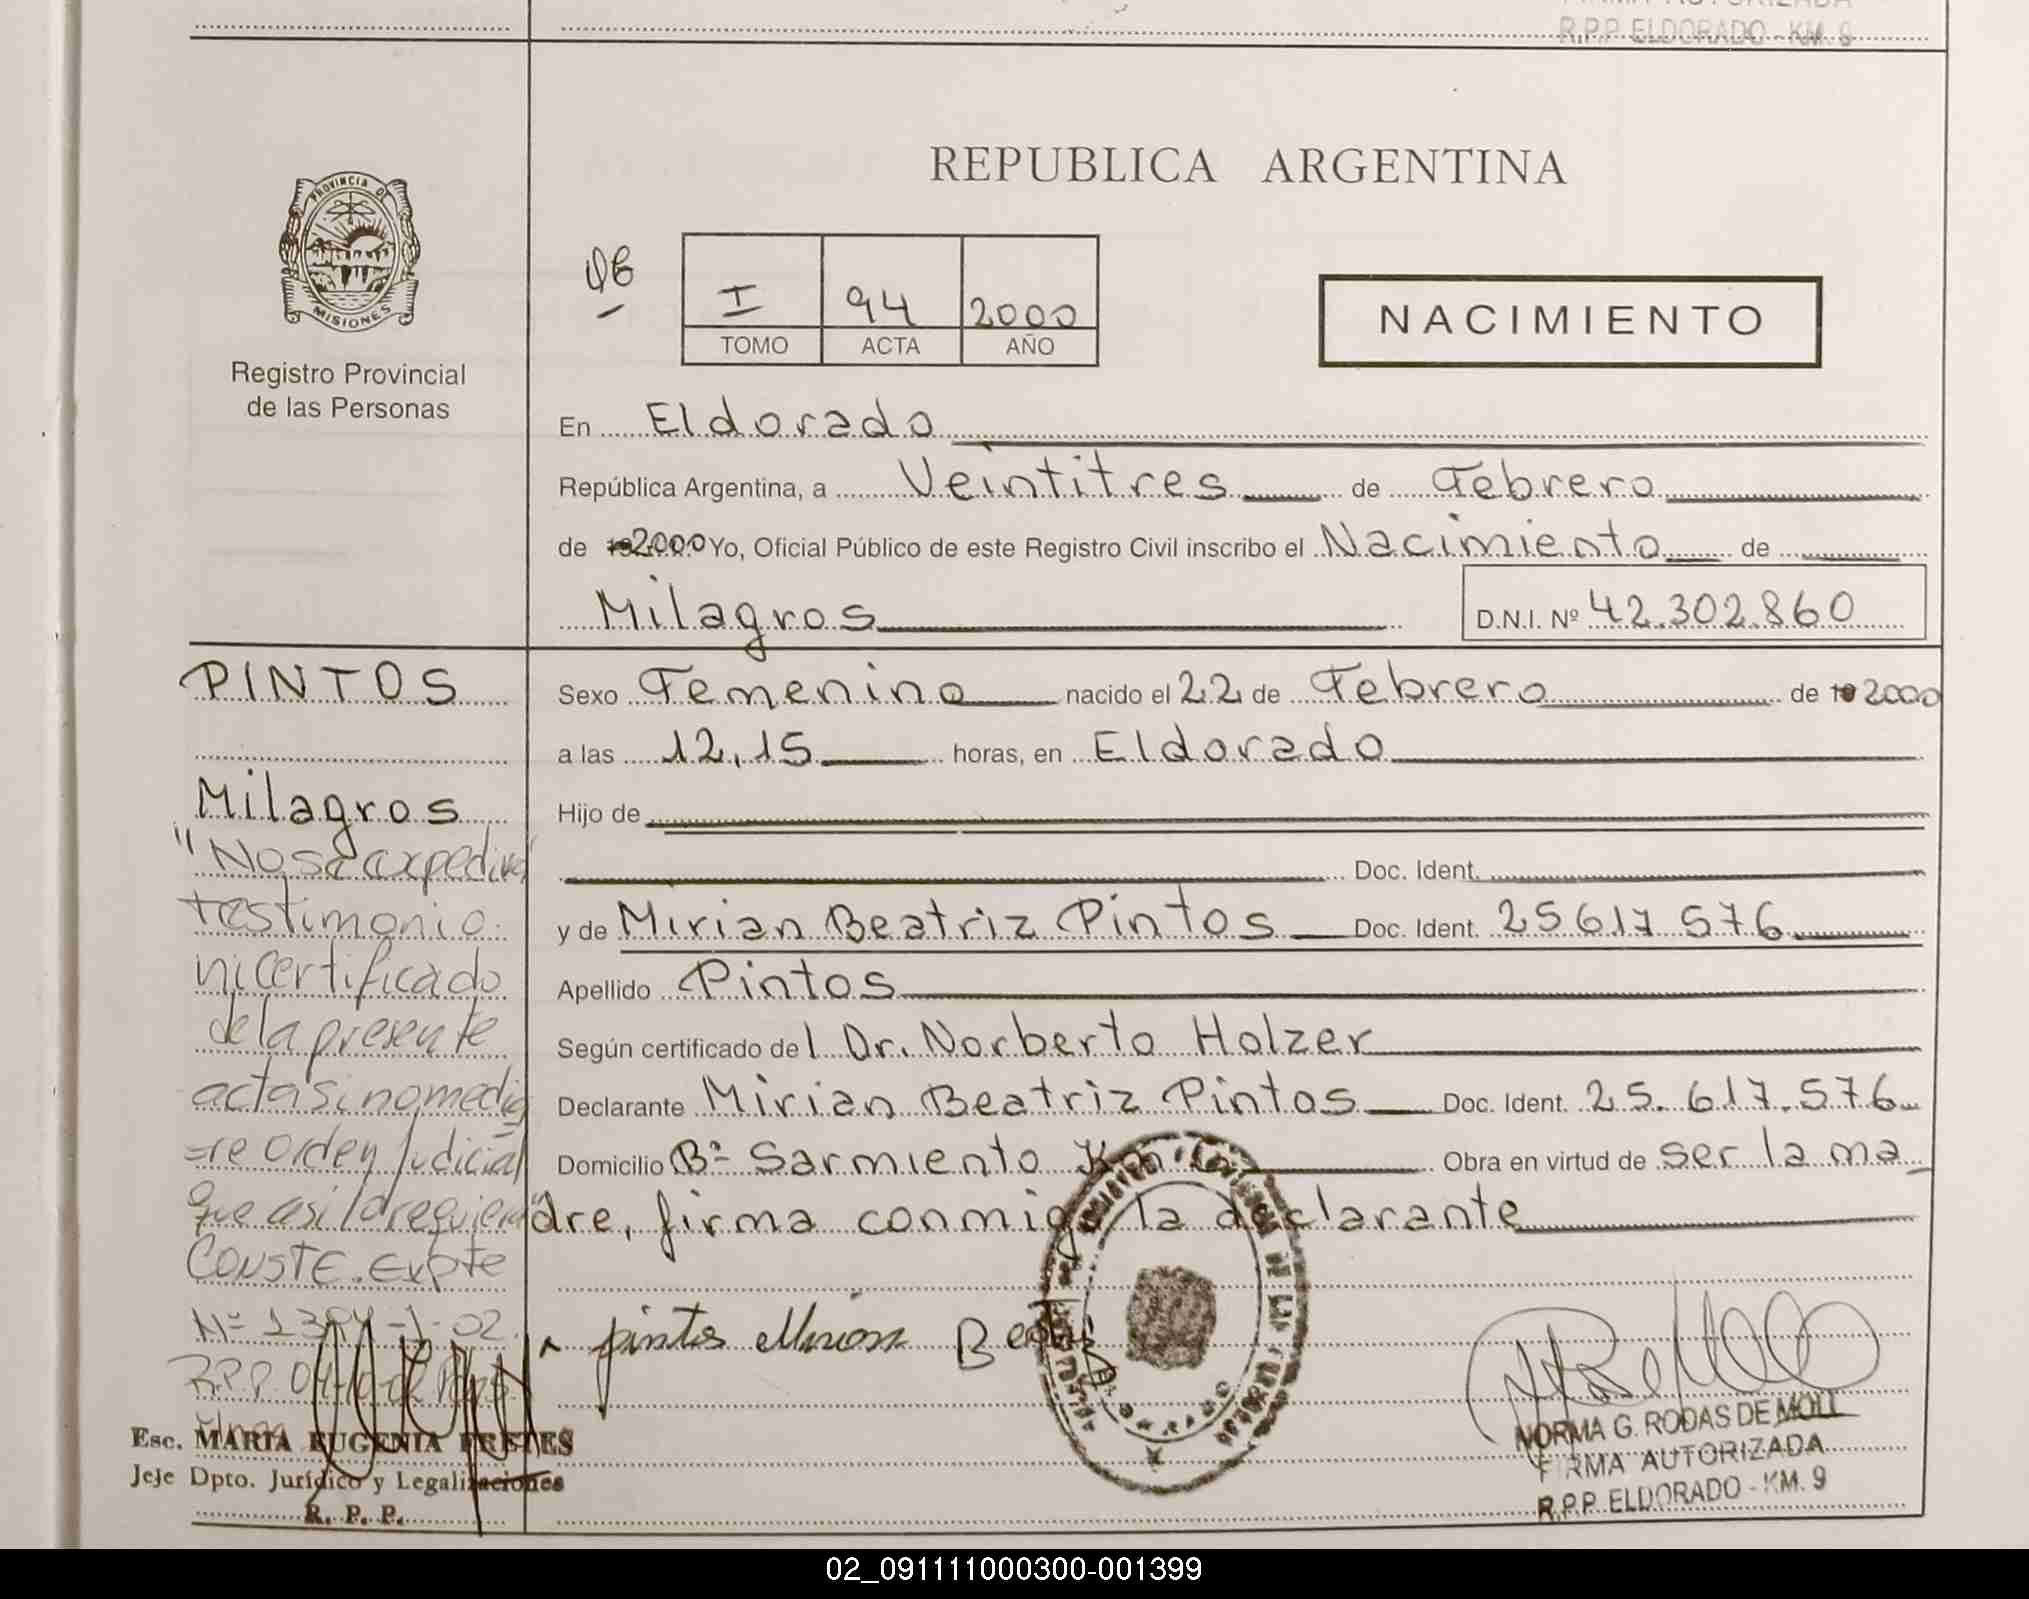 R.P.P. ELDORADO - KM. 9
REPUBLICA ARGENTINA
PROVINCIA DE
MISIONES
Registro Provincial
de las Personas
I 94 2000
TOMO ACTA AÑO
NACIMIENTO
En Eldorado
República Argentina, a Veintitres de Febrero
de 19 2000 Yo, Oficial Público de este Registro Civil inscribo el Nacimiento de
Milagros D.N.I. Nº 42.302.860
PINTOS
Milagros
"No se expedirá
testimonio
ni certificado
de la presente
acta si no media
=re Orden Judicial
que asi lo requiera"
CONSTE. Expte
R.P.P.
Esc. MARIA EUGENIA FRETES
Jefe Dpto. Jurídico y Legalizaciones
R. P. P.
Sexo Femenino nacido el 22 de Febrero de 19 2000
a las 12,15 horas, en Eldorado
Hijo de
Doc. Ident.
y de Mirian Beatriz Pintos Doc. Ident. 25617576
Apellido Pintos
Según certificado del Dr. Norberto Holzer
Declarante Mirian Beatriz Pintos Doc. Ident. 25.617.576
Domicilio Bº Sarmiento Km Obra en virtud de ser la ma_
dre, firma conmigo la declarante
pintos Mirian Beatriz
NORMA G. RODAS DE MOLL
FIRMA AUTORIZADA
R.P.P. ELDORADO - KM. 9
02_091111000300-001399